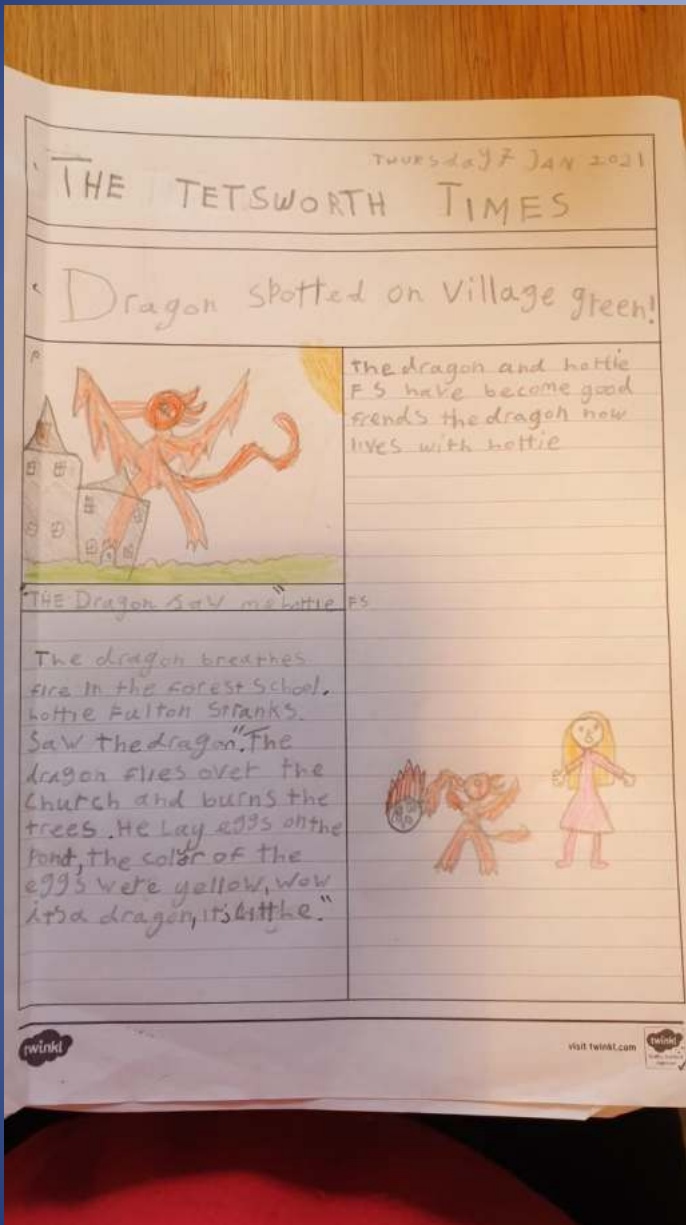 THURSday 7 JAN 2021
THE TETSWORTH TIMES
Dragon spotted on Village green!
"THE Dragon saw me" hottie FS
The dragon breathes
fire in the forest School.
hottie Fulton Stranks.
Saw the dragon". The
dragon flies over the
church and burns the
trees. He Lay eggs on the
Pond, the color of the
eggs were yellow, wow
its a dragon, it's
the dragon and hottie
F S have become good
frends the dragon now
lives with hottie
twinkl
visit twinkl.com
twinkl